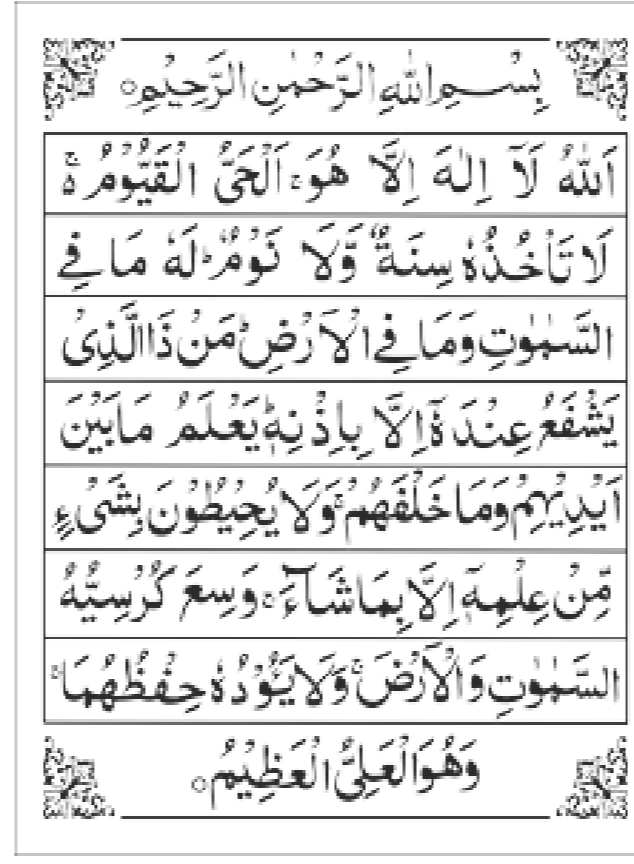 بِسْمِ اللهِ الرَّحْمٰنِ الرَّحِيْمِ ○
اَللهُ لَآ اِلٰهَ اِلَّا هُوَ ۚ اَلْحَيُّ الْقَيُّوْمُ ەۚ
لَا تَاْخُذُهٗ سِنَةٌ وَّلَا نَوْمٌ ؕ لَهٗ مَا فِي
السَّمٰوٰتِ وَمَا فِي الْاَرْضِ ؕ مَنْ ذَا الَّذِيْ
يَشْفَعُ عِنْدَهٗٓ اِلَّا بِاِذْنِهٖ ؕ يَعْلَمُ مَا بَيْنَ
اَيْدِيْهِمْ وَمَا خَلْفَهُمْ ۚ وَلَا يُحِيْطُوْنَ بِشَيْءٍ
مِّنْ عِلْمِهٖٓ اِلَّا بِمَا شَآءَ ۚ وَسِعَ كُرْسِيُّهُ
السَّمٰوٰتِ وَالْاَرْضَ ۚ وَلَا يَـُٔوْدُهٗ حِفْظُهُمَا ۚ
وَهُوَ الْعَلِيُّ الْعَظِيْمُ ○